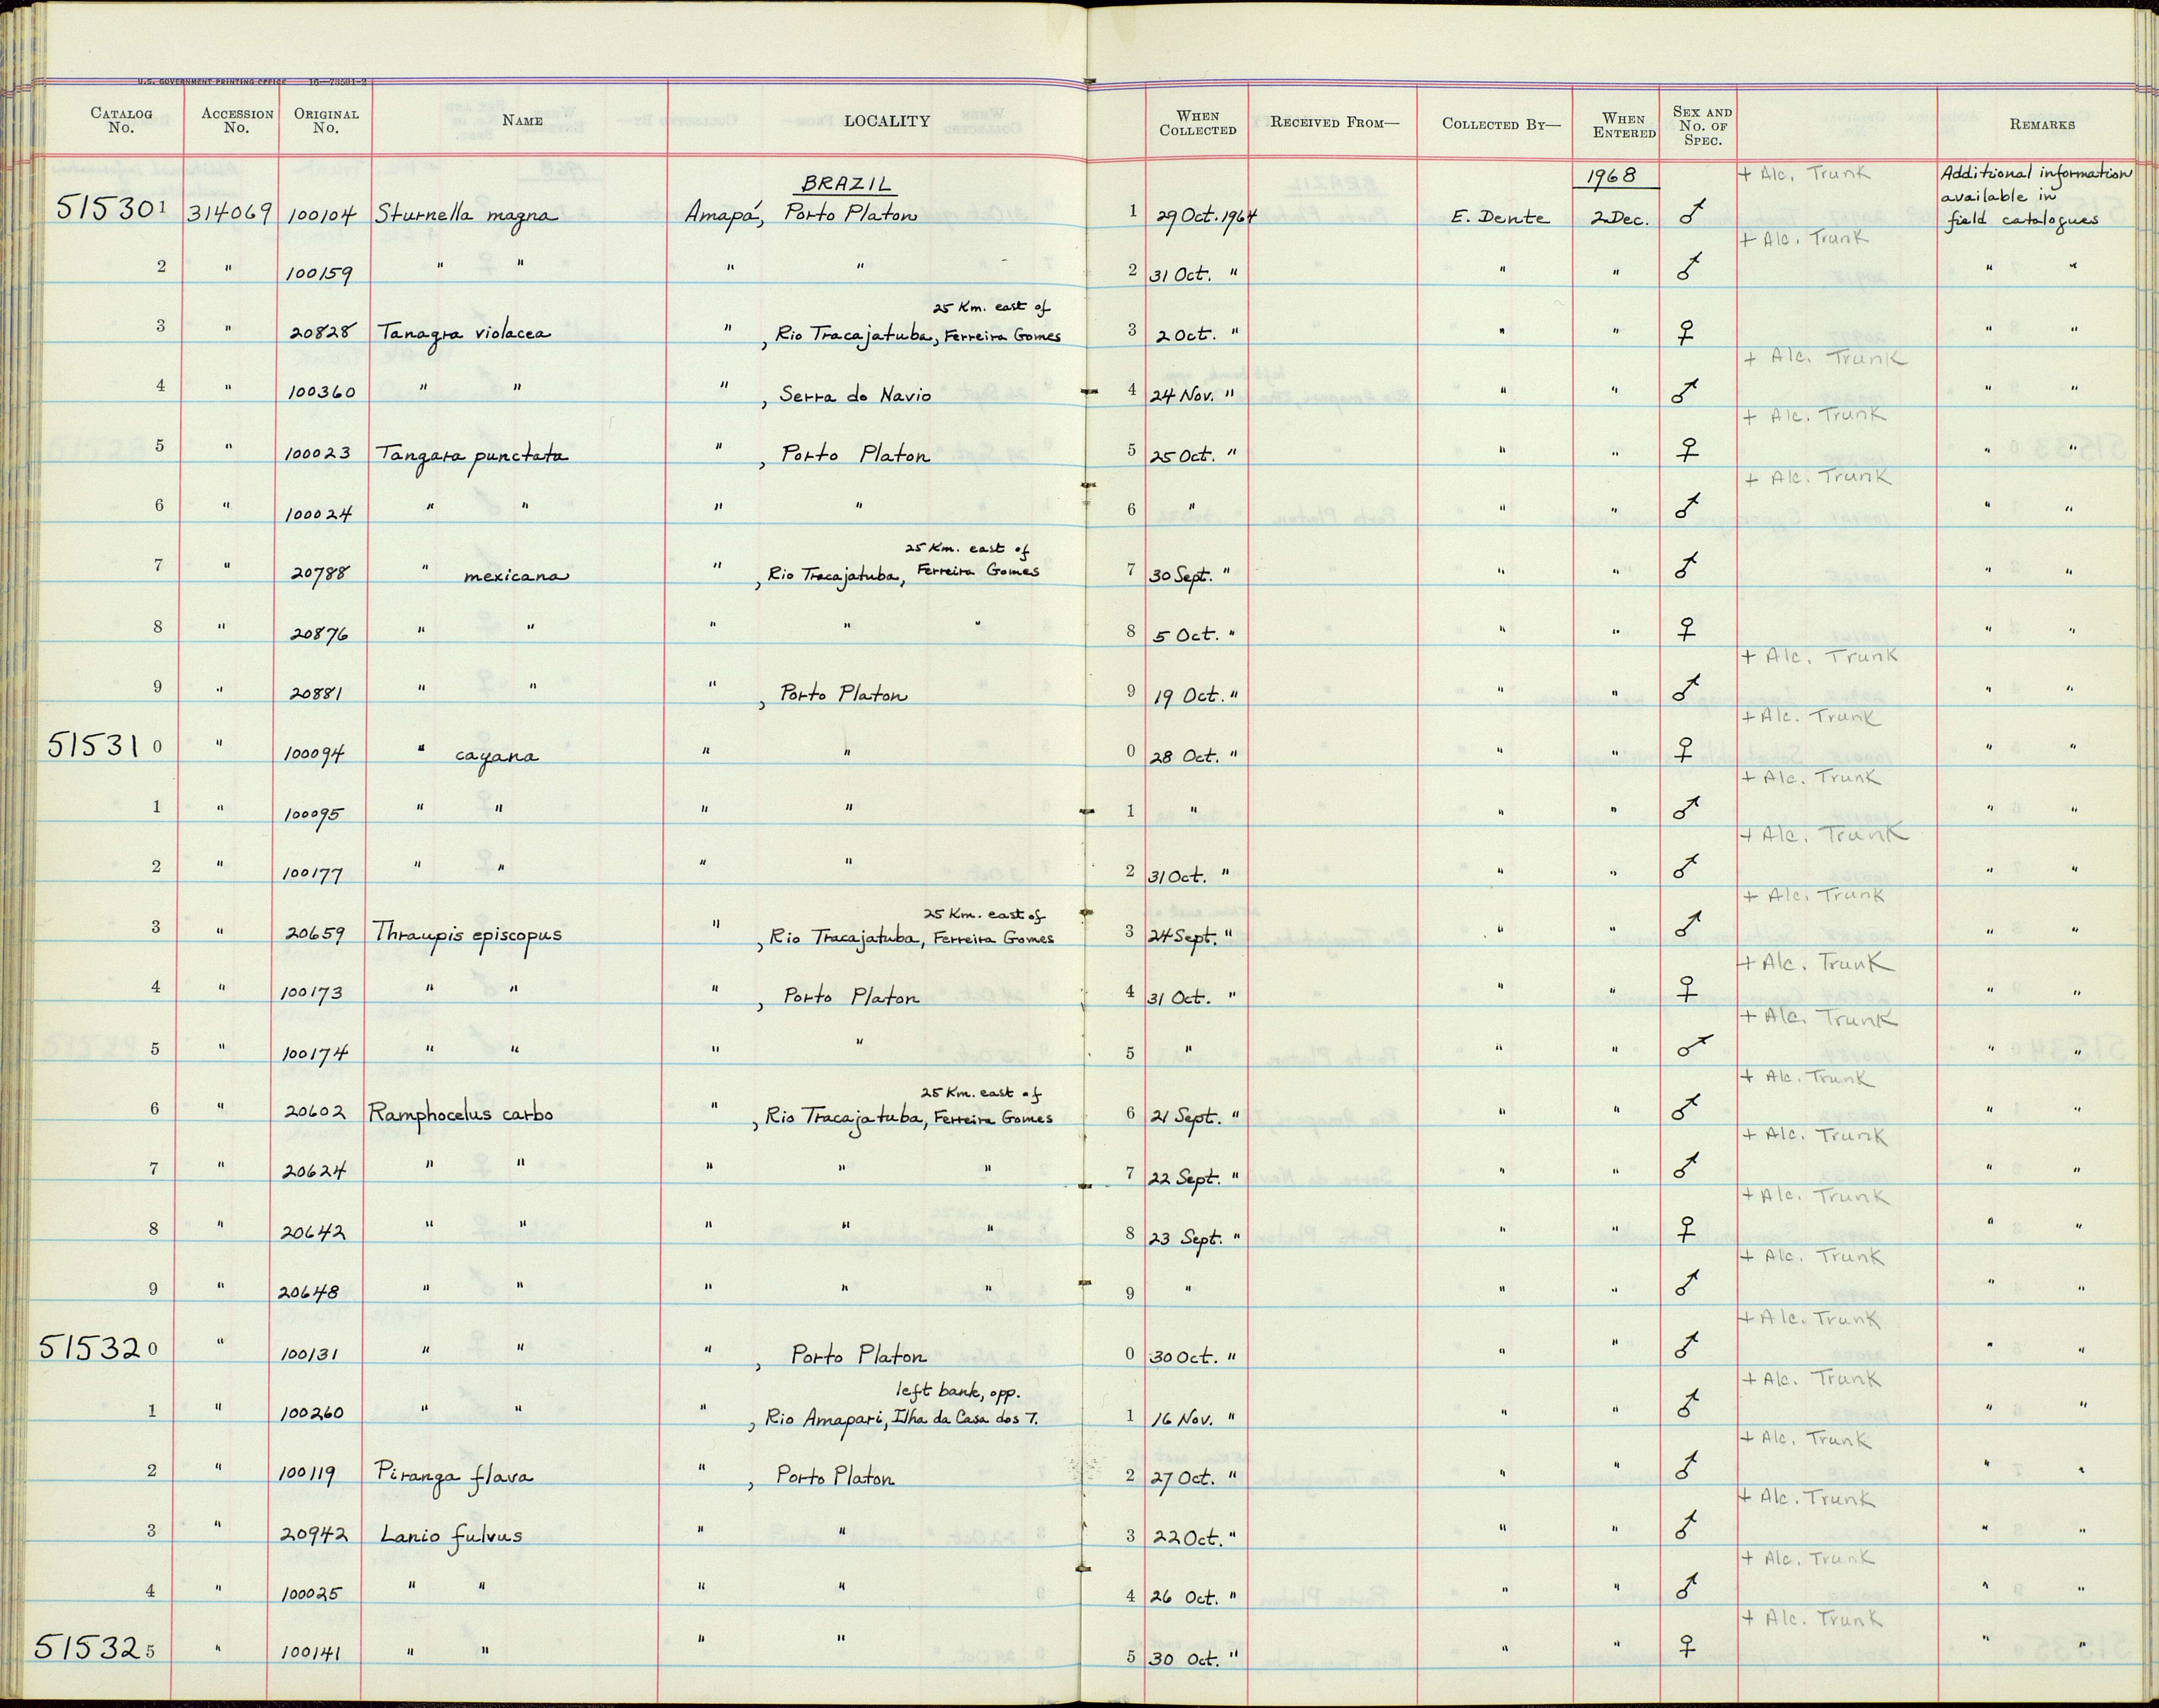 U.S. GOVERNMENT PRINTING OFFICE 16—73591-2
CATALOG No. ACCESSION No. ORIGINAL No. NAME LOCALITY WHEN COLLECTED RECEIVED FROM— COLLECTED BY— WHEN ENTERED SEX AND No. OF SPEC. REMARKS
BRAZIL 1968 + Alc. Trunk Additional information available in field catalogues
515301 314069 100104 Sturnella magna Amapá, Porto Platon 1 29 Oct. 1964 E. Dente 2 Dec. ♂
+ Alc. Trunk
2 " 100159 " " " " 2 31 Oct. " " " ♂ " "
25 Km. east of
3 " 20828 Tanagra violacea " , Rio Tracajatuba, Ferreira Gomes 3 2 Oct. " " " ♀ " "
+ Alc. Trunk
4 " 100360 " " " , Serra do Navio 4 24 Nov. " " " ♂ " "
+ Alc. Trunk
5 " 100023 Tangara punctata " , Porto Platon 5 25 Oct. " " " ♀ " "
+ Alc. Trunk
6 " 100024 " " " " 6 " " " ♂ " "
25 Km. east of
7 " 20788 " mexicana " , Rio Tracajatuba, Ferreira Gomes 7 30 Sept. " " " ♂ " "
8 " 20876 " " " " " 8 5 Oct. " " " ♀ " "
+ Alc. Trunk
9 " 20881 " " " , Porto Platon 9 19 Oct. " " " ♂ " "
+ Alc. Trunk
515310 " 100094 " cayana " " 0 28 Oct. " " " ♀ " "
+ Alc. Trunk
1 " 100095 " " " " 1 " " " ♂ " "
+ Alc. Trunk
2 " 100177 " " " " 2 31 Oct. " " " ♂ " "
25 Km. east of + Alc. Trunk
3 " 20659 Thraupis episcopus " , Rio Tracajatuba, Ferreira Gomes 3 24 Sept. " " " ♂ " "
+ Alc. Trunk
4 " 100173 " " " , Porto Platon 4 31 Oct. " " " ♀ " "
+ Alc. Trunk
5 " 100174 " " " " 5 " " " ♂ " "
25 Km. east of + Alc. Trunk
6 " 20602 Ramphocelus carbo " , Rio Tracajatuba, Ferreira Gomes 6 21 Sept. " " " ♂ " "
+ Alc. Trunk
7 " 20624 " " " " " 7 22 Sept. " " " ♂ " "
+ Alc. Trunk
8 " 20642 " " " " " 8 23 Sept. " " " ♀ " "
+ Alc. Trunk
9 " 20648 " " " " " 9 " " " ♂ " "
+ Alc. Trunk
515320 " 100131 " " " , Porto Platon 0 30 Oct. " " " ♂ " "
left bank, opp. + Alc. Trunk
1 " 100260 " " " , Rio Amapari, Ilha da Casa dos T. 1 16 Nov. " " " ♂ " "
+ Alc. Trunk
2 " 100119 Piranga flava " , Porto Platon 2 27 Oct. " " " ♂ " "
+ Alc. Trunk
3 " 20942 Lanio fulvus " " 3 22 Oct. " " " ♂ " "
+ Alc. Trunk
4 " 100025 " " " " 4 26 Oct. " " " ♂ " "
+ Alc. Trunk
515325 " 100141 " " " " 5 30 Oct. " " " ♀ " "